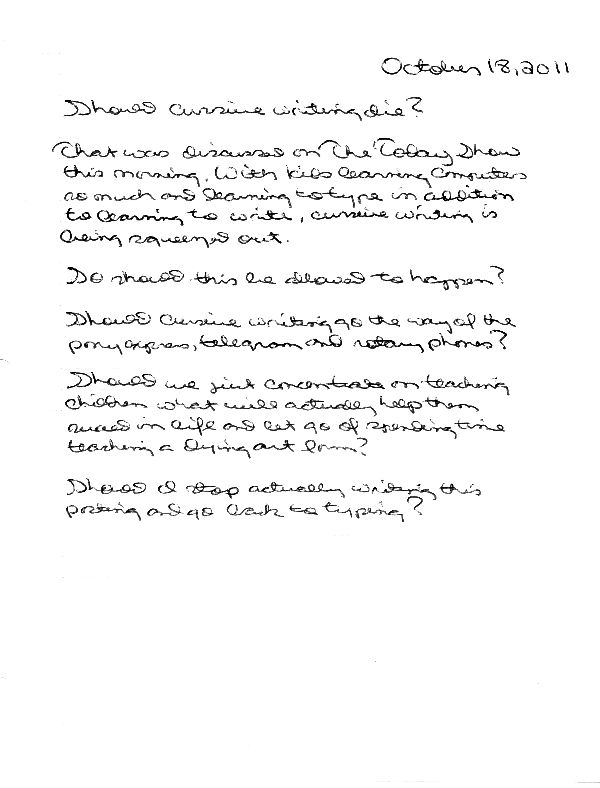 October 18, 2011
Should cursive writing die?
That was discussed on "The Today Show
this morning. With kids learning computers
so much and learning to type in addition
to learning to write, cursive writing is
being squeezed out.
So should this be allowed to happen?
Should cursive writing go the way of the
pony express, telegram and rotary phones?
Should we just concentrate on teaching
children what will actually help them
succeed in life and let go of spending time
teaching a dying art form?
Should I stop actually writing this
posting and go back to typing?